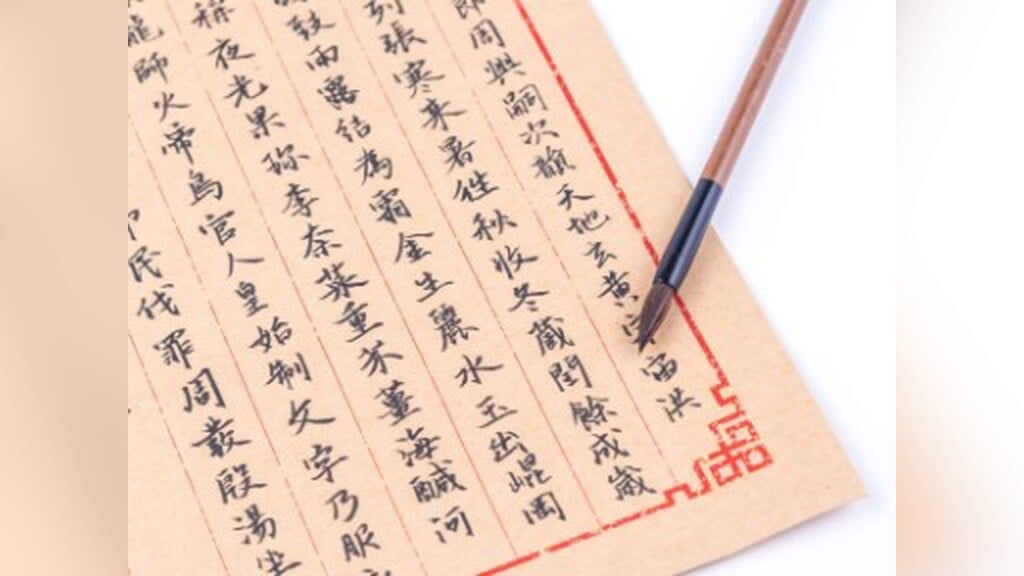 周興嗣次韻天地玄黃宙洪
列張寒来暑往秋收冬藏閏餘成歲
致雨露結為霜金生麗水玉出崐岡
稱夜光果珍李柰菜重芥薑海鹹河
龍師火帝鳥官人皇始制文字乃服
民伐罪周發殷湯坐